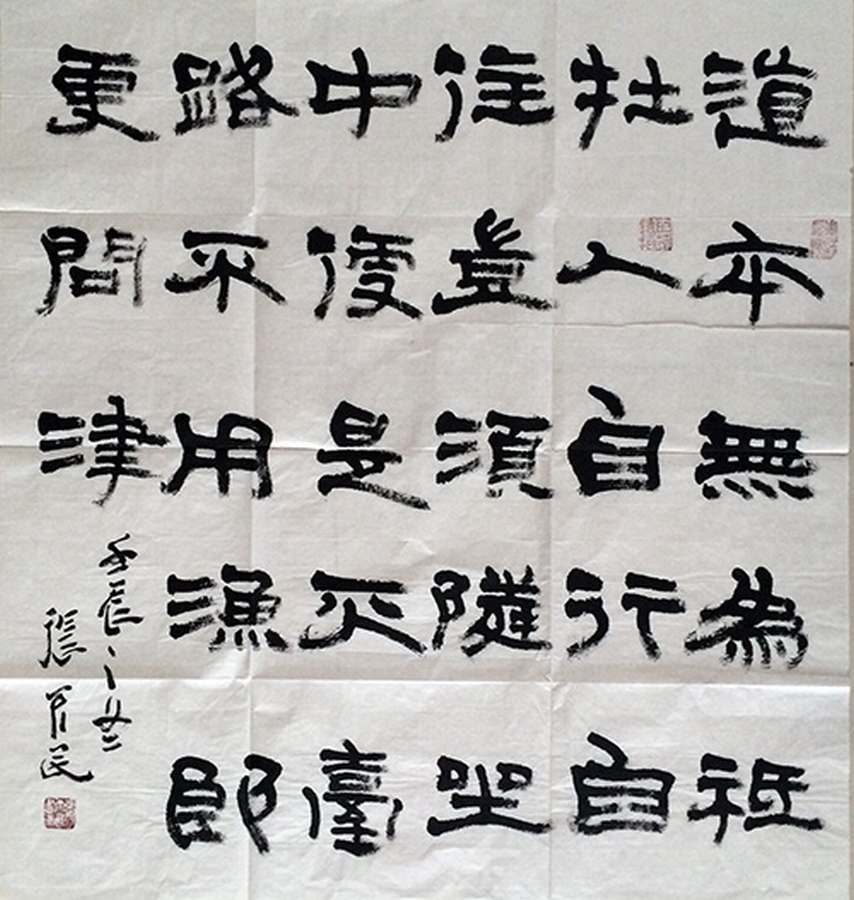 道本無為祗
在人自行自
往豈須隣坐
中便是天臺
路不用漁郎
更問津
壬辰
張 民